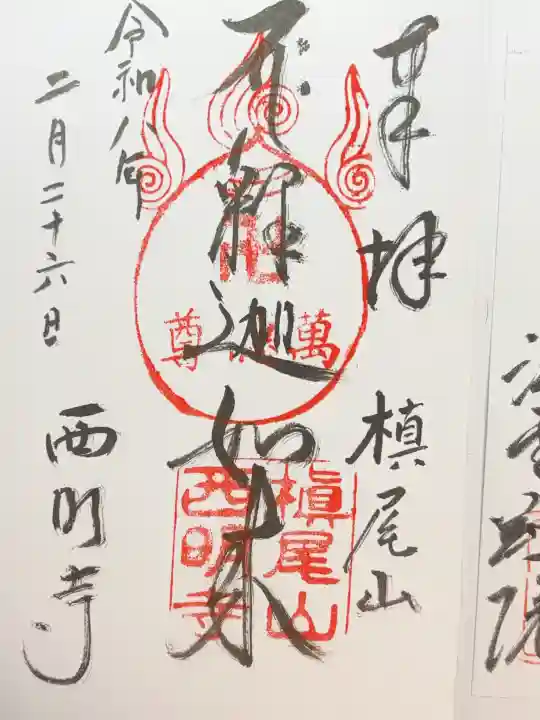 奉拝
槇尾山
釋迦如来
令和八年
二月二十六日
西明寺
萬
尊
槇尾山
西明寺